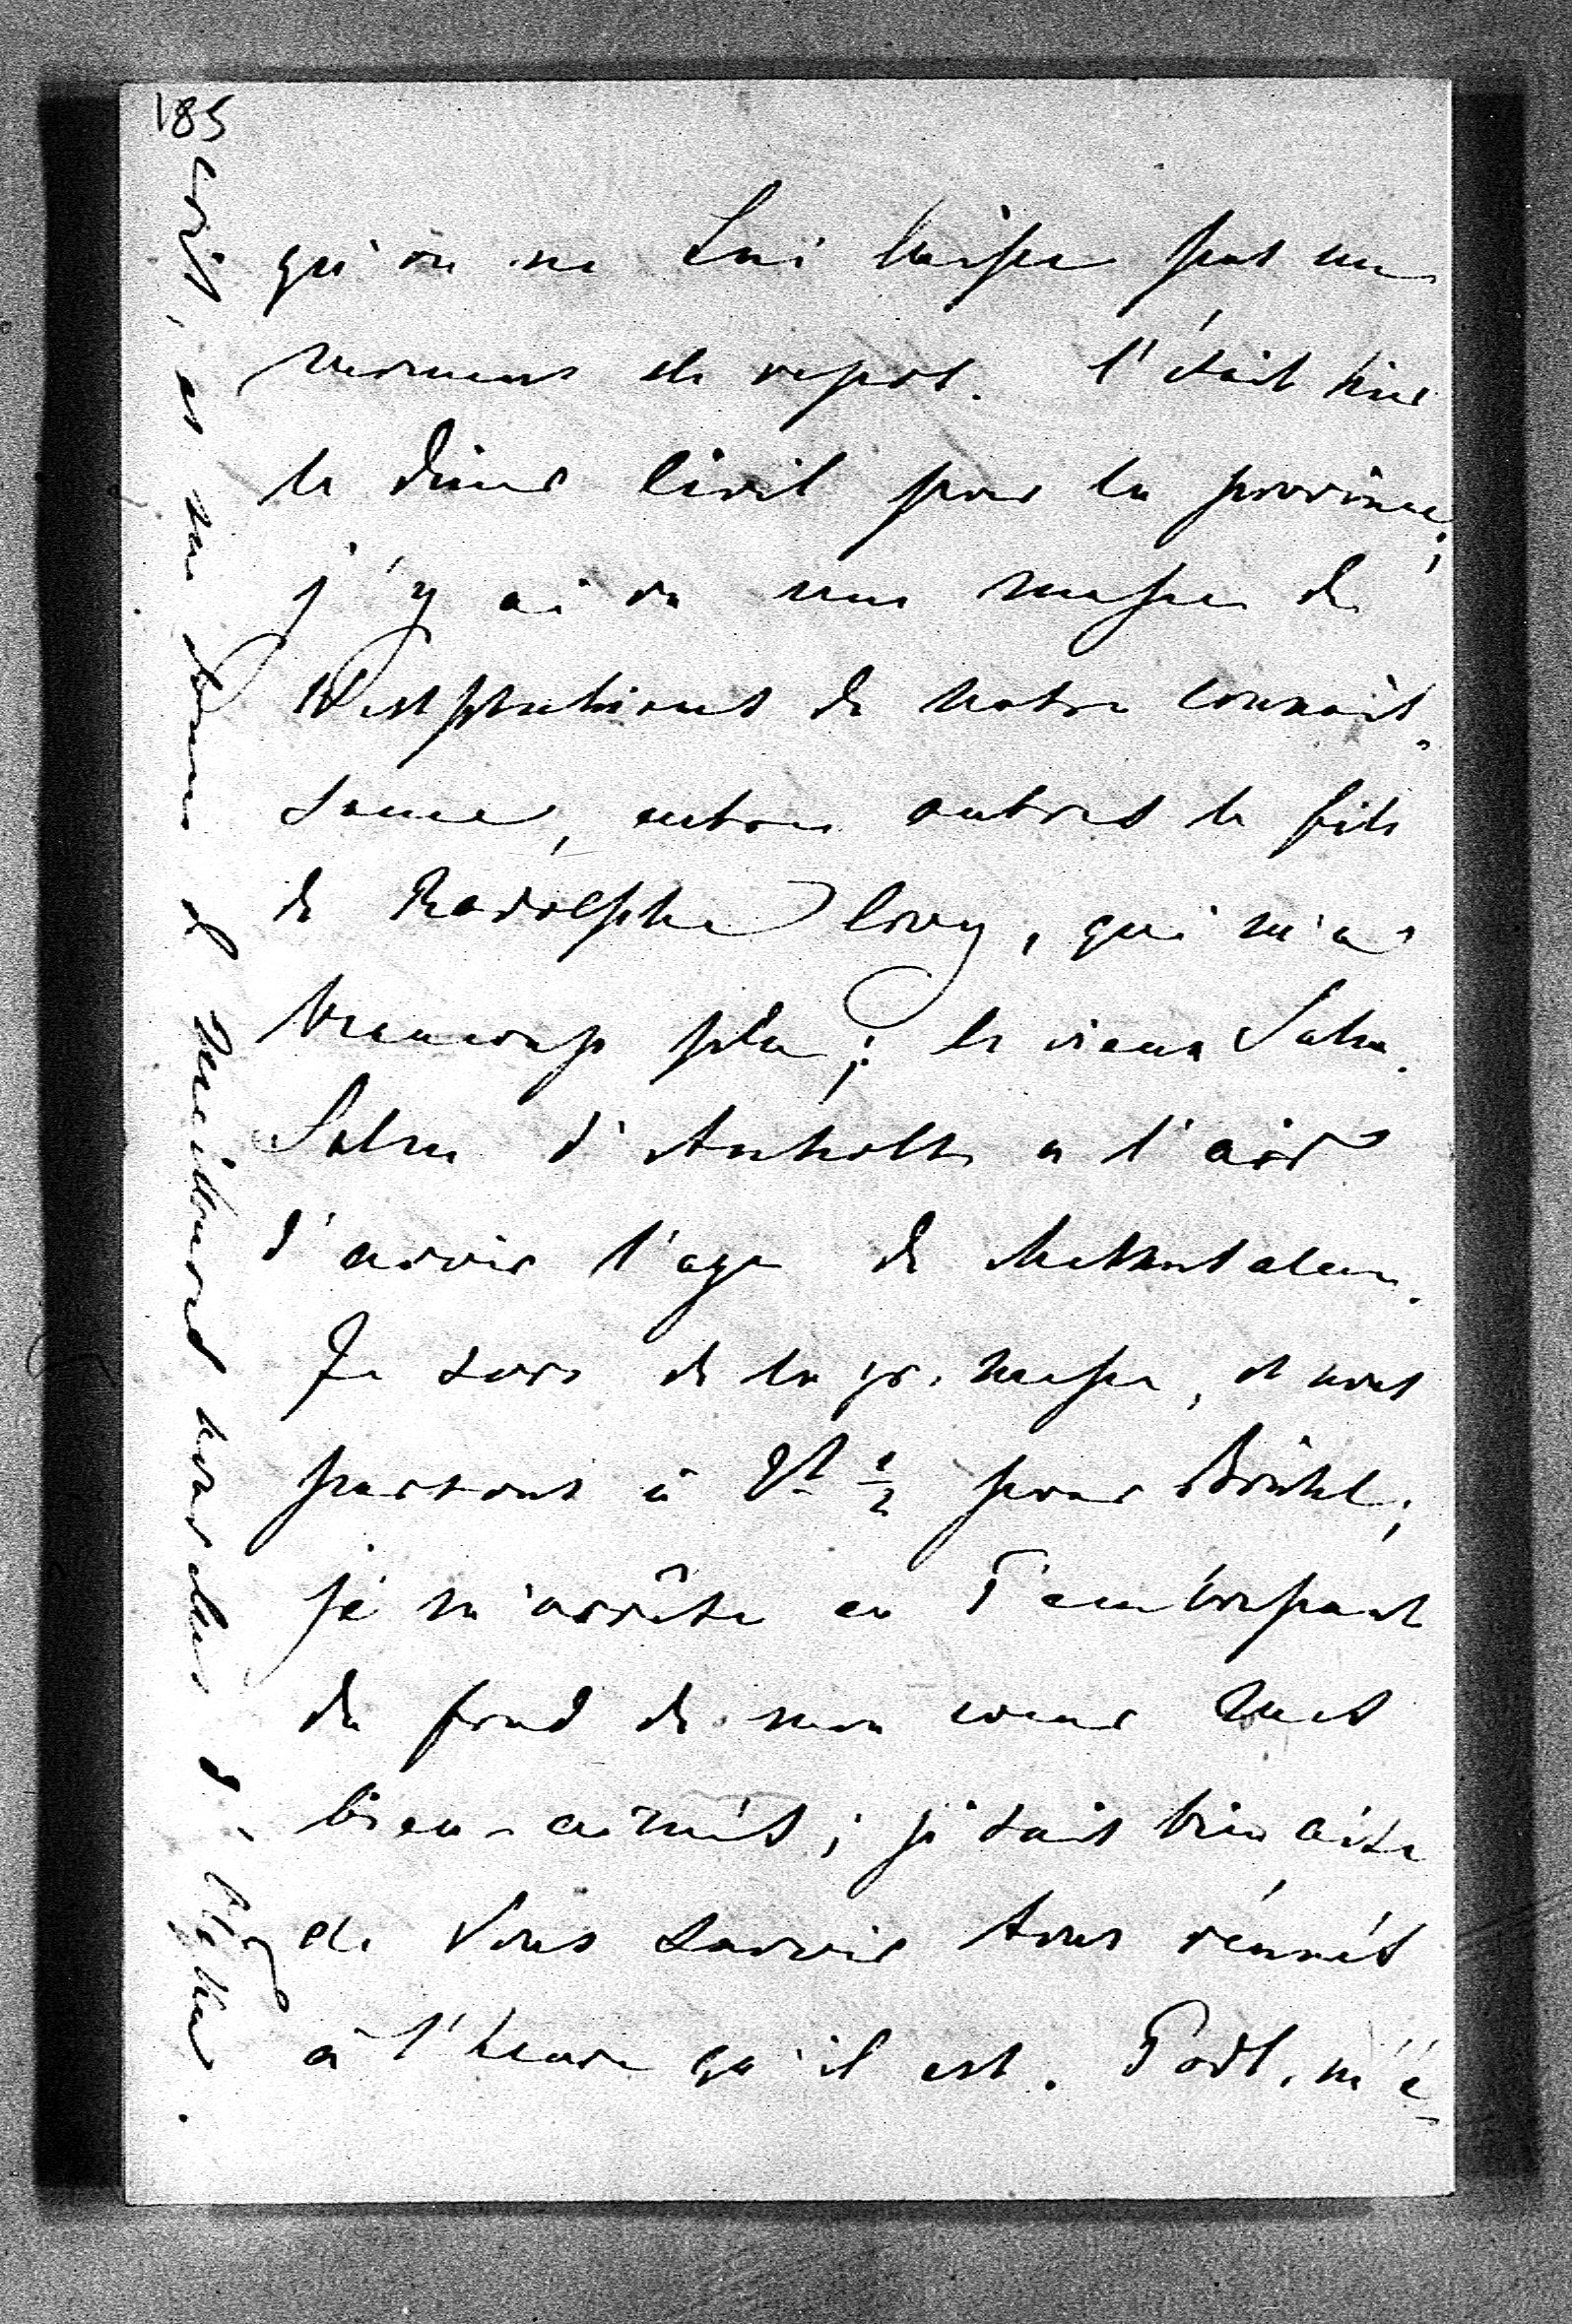 185
qu'on ne Lui laisse pas un
moment de repos. C'était hier
le diner civil pour la province;
j'y ai vu une masse de
Westphaliens de notre connais-
sance, entre autres le fils
de Rodolphe Croy, qui m'a
beaucoup plu; le vieux Salm-
Salm d'Anholt a l'air
d'avoir l'age de Mathusalem.
Je sors de la gr. messe, et nous
partons à 2h 1/2 pour Brühl;
je m'arrête en T'embrassant
du fond de mon coeur mes
bien-aimés; je suis bien aise
de Vous savoir tous réunis
à l'heure qu'il est. Godl. m'é-
crit, et me donne de